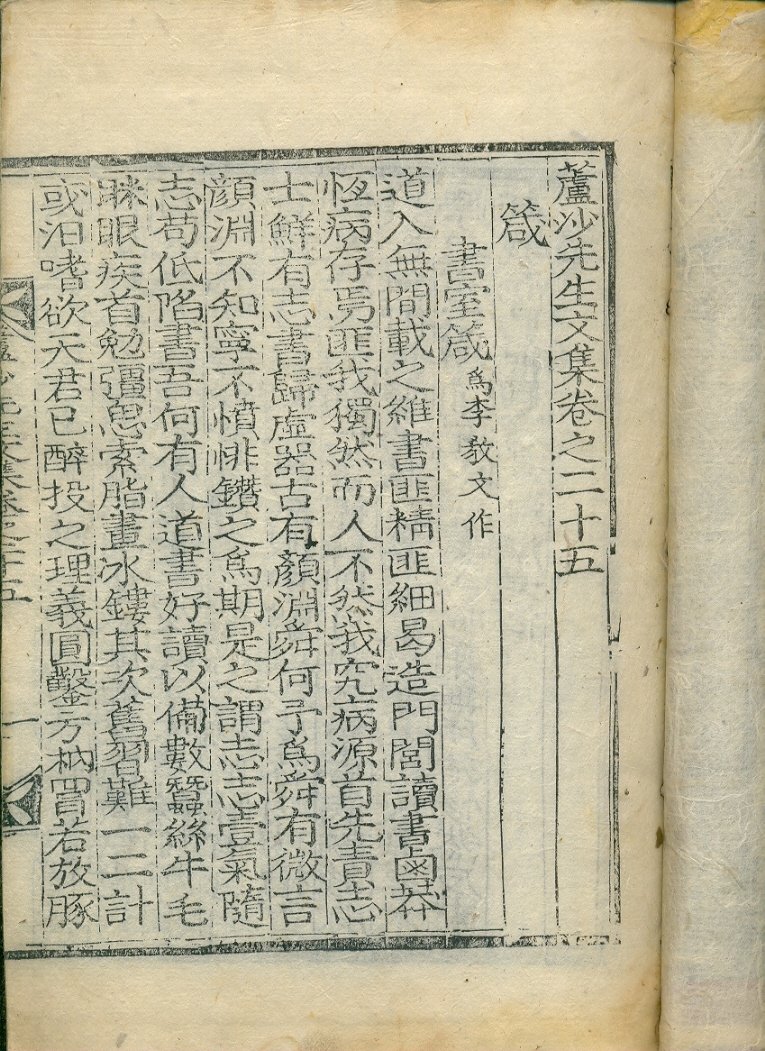 蘆沙先生文集卷之二十五
箴
書室箴 爲李敎文作
道入無間載之維書匪精匪細曷造門閭讀書鹵莽
恆病存焉匪我獨然而人不然我究病源首先責志
士鮮有志書歸虛器古有顏淵舜何予爲舜有微言
顏淵不知寧不憤悱鑽之爲期是之謂志志壹氣隨
志苟低陷書吾何有人道書好讀以備數蠶絲牛毛
眯眼疾首勉彊思索脂畫冰鏤其次舊習難一二計
或汨嗜欲天君已醉投之理義圓鑿方枘罥若放豚
蘆沙先生文集卷之二十五 一